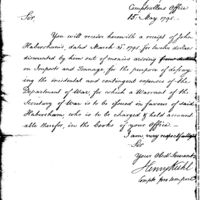 Comptrollers Office
15. May 1795.
Sir,
You will receive herewith a receipt of John
Habersham, dated March 15. 1795 for twelve dollars
disbursed by him out of monies arising
on Imports and Tonnage, for the purpose of defray
ing the incidental and contingent expences of the
Department of War, for which a Warrant of the
Secretary of War is to be issued in favour of said
Habersham, who is to be charged & held account
able therefor, in the Books of your Office.
I am, very respectfully
Sir
Your Obed. Servant
Henry Kuhl
Compt. pro tempore